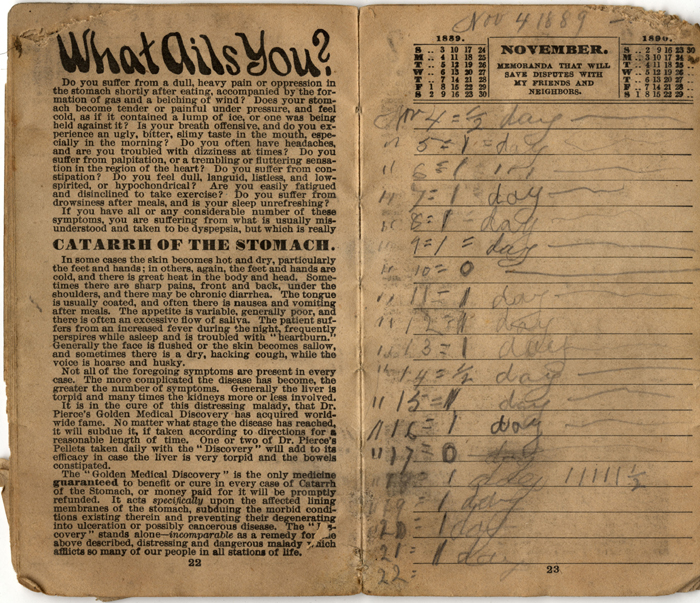 What Ails You?
Do you suffer from a dull, heavy pain or oppression in
the stomach shortly after eating, accompanied by the for-
mation of gas and a belching of wind? Does your stom-
ach become tender or painful under pressure, and feel
cold, as if it contained a lump of ice, or one was being
held against it? Is your breath offensive, and do you ex-
perience an ugly, bitter, slimy taste in the mouth, espe-
cially in the morning? Do you often have headaches,
and are you troubled with dizziness at times? Do you
suffer from palpitation, or a trembling or fluttering sensa-
tion in the region of the heart? Do you suffer from con-
stipation? Do you feel dull, languid, listless, and low-
spirited, or hypochondrical? Are you easily fatigued
and disinclined to take exercise? Do you suffer from
drowsiness after meals, and is your sleep unrefreshing?
If you have all or any considerable number of these
symptoms, you are suffering from what is usually mis-
understood and taken to be dyspepsia, but which is really
CATARRH OF THE STOMACH.
In some cases the skin becomes hot and dry, particularly
the feet and hands; in others, again, the feet and hands are
cold, and there is great heat in the body and head. Some-
times there are sharp pains, front and back, under the
shoulders, and there may be chronic diarrhea. The tongue
is usually coated, and often there is nausea and vomiting
after meals. The appetite is variable, generally poor, and
there is often an excessive flow of saliva. The patient suf-
fers from an increased fever during the night, frequently
perspires while asleep and is troubled with "heartburn."
Generally the face is flushed or the skin becomes sallow,
and sometimes there is a dry, hacking cough, while the
voice is hoarse and husky.
Not all of the foregoing symptoms are present in every
case. The more complicated the disease has become, the
greater the number of symptoms. Generally the liver is
torpid and many times the kidneys more or less involved.
It is in the cure of this distressing malady, that Dr.
Pierce's Golden Medical Discovery has acquired world-
wide fame. No matter what stage the disease has reached,
it will subdue it, if taken according to directions for a
reasonable length of time. One or two of Dr. Pierce's
Pellets taken daily with the "Discovery" will add to its
efficacy in case the liver is very torpid and the bowels
constipated.
The "Golden Medical Discovery" is the only medicine
guaranteed to benefit or cure in every case of Catarrh
of the Stomach, or money paid for it will be promptly
refunded. It acts specifically upon the affected lining
membranes of the stomach, subduing the morbid condi-
tions existing therein and preventing their degenerating
into ulceration or possibly cancerous disease. The
covery" stands alone—incomparable as a remedy for
above described, distressing and dangerous malady which
afflicts so many of our people in all stations of life.
22
Nov 4 1889
1889.
S .. 3 10 17 24
M .. 4 11 18 25
T .. 5 12 19 26
W .. 6 13 20 27
T .. 7 14 21 28
F 1 8 15 22 29
S 2 9 16 23 30
NOVEMBER.
MEMORANDA THAT WILL
SAVE DISPUTES WITH
MY FRIENDS AND
NEIGHBORS.
1890.
S .. 2 9 16 23 30
M .. 3 10 17 24
T .. 4 11 18 25
W .. 5 12 19 26
T .. 6 13 20 27
F .. 7 14 21 28
S 1 8 15 22 29
Nov 4 = 1/2 day
" 5 = 1 = day
" 6 = 1
" 7 = 1 day
" 8 = 1 day
" 9 = 1 = day
" 10 = 0
" 11 = 1 day
" 12 = 1 day
" 13 = 1
" 14 = 1/2 day
" 15 = 1 day
" 16 = 1 day
" 17 = 0 day
18 = 1 day 11111 1/2
19 = 1 day
20 = 1 day
21 = 1 day
22 =
23